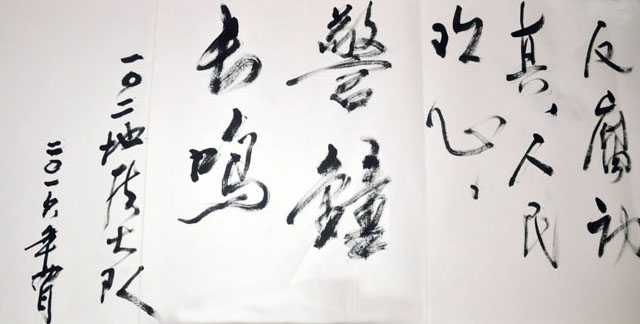 反腐动
真，人民
欢心，
警鐘
长鸣
一〇二地质大队
二〇一六年